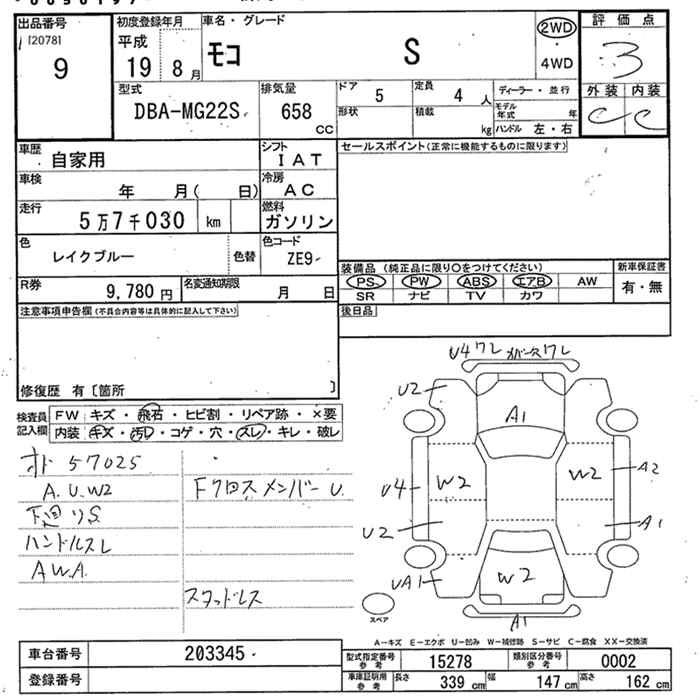 出品番号 初度登録年月 車名・グレード 2WD 評価点
120781 平成 モコ S 3
9 19 8月 4WD
外装 内装
型式 排気量 ドア 5 定員 4人 ディーラー・並行
DBA-MG22S 658 cc 形状 積載 kg モデル年式 年 C C
ハンドル 左・右
車歴 自家用 シフト IAT セールスポイント(正常に機能するものに限ります)
車検 年 月( 日) 冷房 AC
走行 5万7千030 km 燃料 ガソリン
色 レイクブルー 色替 色コード ZE9
装備品 (純正品に限り○をつけてください) 新車保証書
R券 9,780円 名変通知期限 月 日 PS PW ABS エアB AW 有・無
SR ナビ TV カワ
注意事項申告欄(不具合内容等は具体的に記入して下さい) 後日品
修復歴 有〔箇所 〕
検査員記入欄 FW キズ・飛石・ヒビ割・リペア跡・×要
内装 キズ・汚レ・コゲ・穴・スレ・キレ・破レ
U4ワレ
U2
A1
オド 57025
A.U.W2 Fクロスメンバー U.
下廻りS
ハンドルスレ
AWA.
スタッドレス
W2 W2 A2
U4
U2 A1
UA1 W2
スペア
A1
A-キズ E-エクボ U-凹み W-補修跡 S-サビ C-腐食 XX-交換済
車台番号 203345 型式指定番号参考 15278 類別区分番号参考 0002
登録番号 車庫証明用参考 長さ 339 cm 幅 147 cm 高さ 162 cm